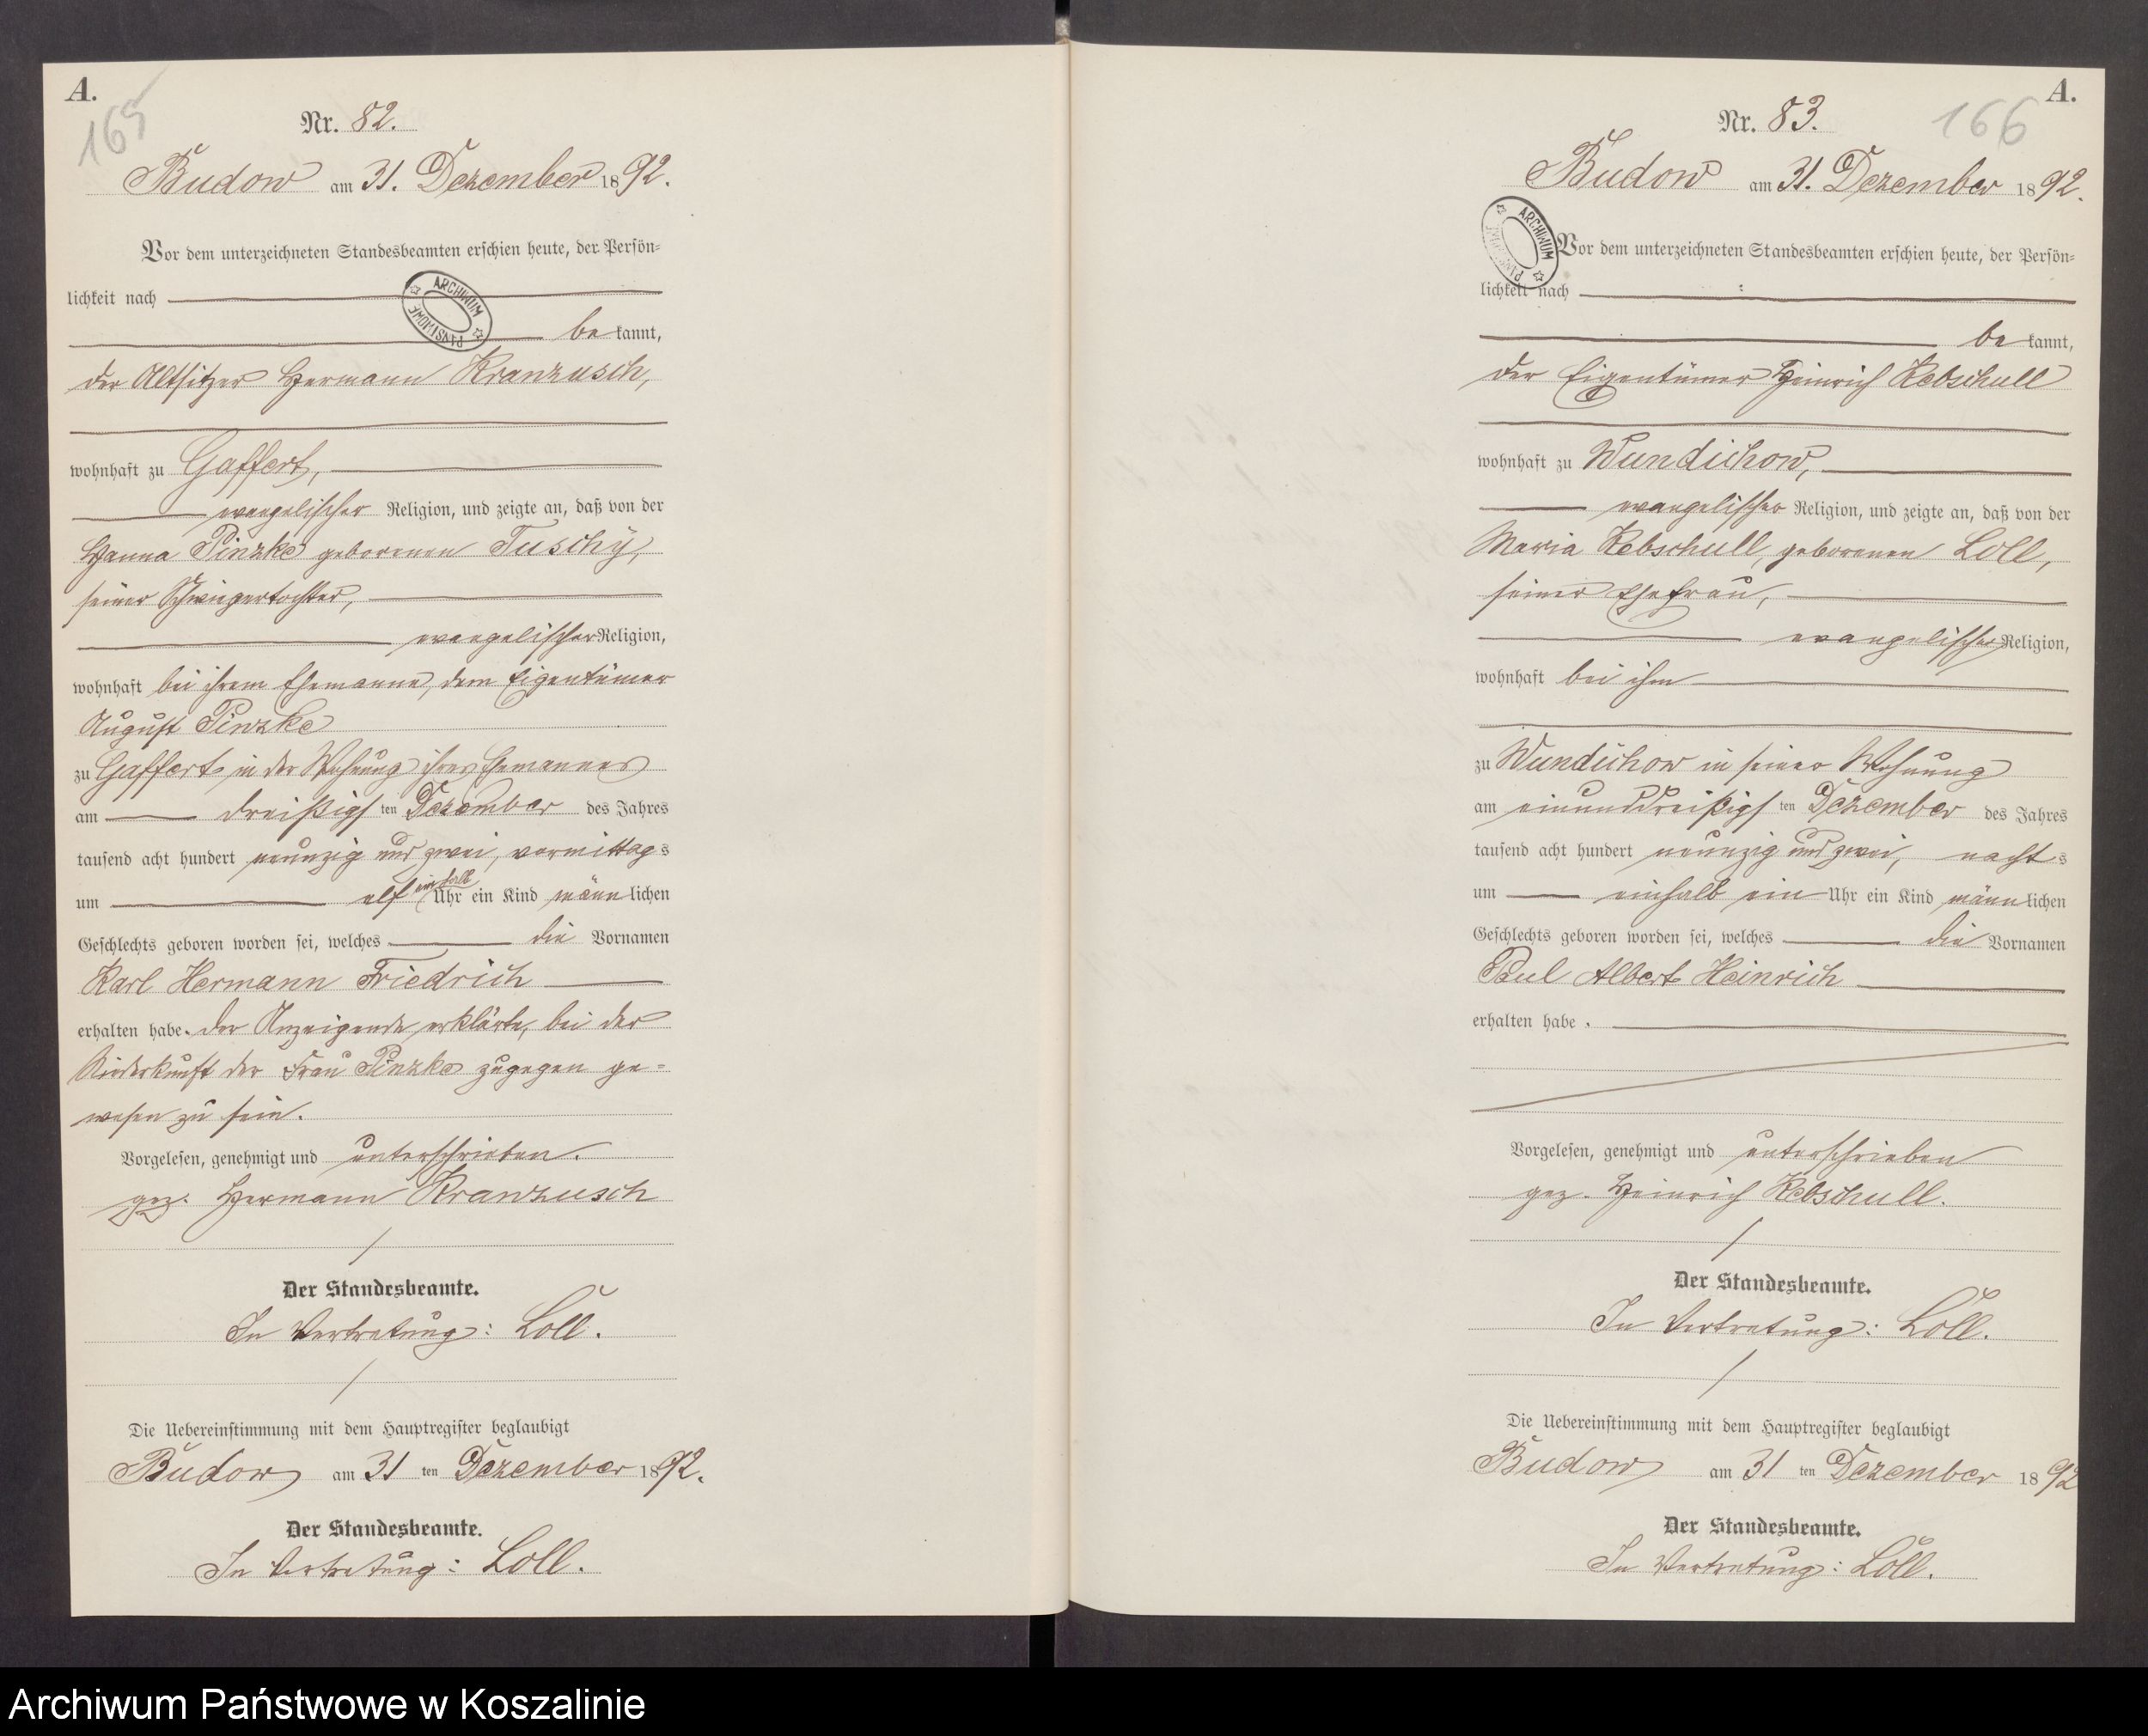 A.
165
Nr. 82.
Budow am 31. Dezember 1892.
Vor dem unterzeichneten Standesbeamten erschien heute, der Persön-
lichkeit nach
ARCHIWUM PAŃSTWOWE
be kannt,
der Altsitzer Hermann Kranzusch,
wohnhaft zu Gaffert,
evangelischer Religion, und zeigte an, daß von der
Hanna Pinzke geborenen Tuschy,
seiner Schwiegertochter,
evangelischer Religion,
wohnhaft bei ihrem Ehemanne, dem Eigentümer
August Pinzke
zu Gaffert in der Wohnung ihres Ehemannes
am dreißigs ten Dezember des Jahres
tausend acht hundert neunzig und zwei, vormittags
um elf einhalb Uhr ein Kind männlichen
Geschlechts geboren worden sei, welches die Vornamen
Karl Hermann Friedrich
erhalten habe. Der Anzeigende erklärte, bei der
Niederkunft der Frau Pinzke zugegen ge-
wesen zu sein.
Vorgelesen, genehmigt und unterschrieben.
gez. Hermann Kranzusch
Der Standesbeamte.
In Vertretung: Loll.
Die Uebereinstimmung mit dem Hauptregister beglaubigt
Budow am 31 ten Dezember 1892.
Der Standesbeamte.
In Vertretung: Loll.
A.
166
Nr. 83.
Budow am 31. Dezember 1892.
ARCHIWUM
Vor dem unterzeichneten Standesbeamten erschien heute, der Persön-
lichkeit nach
be kannt,
der Eigentümer Heinrich Rebschull
wohnhaft zu Wundichow,
evangelischer Religion, und zeigte an, daß von der
Maria Rebschull, geborenen Loll,
seiner Ehefrau,
evangelischer Religion,
wohnhaft bei ihm
zu Wundichow in seiner Wohnung
am einunddreißigs ten Dezember des Jahres
tausend acht hundert neunzig und zwei, nachts
um einhalb ein Uhr ein Kind männlichen
Geschlechts geboren worden sei, welches die Vornamen
Paul Albert Heinrich
erhalten habe.
Vorgelesen, genehmigt und unterschrieben
gez. Heinrich Rebschull.
Der Standesbeamte.
In Vertretung: Loll.
Die Uebereinstimmung mit dem Hauptregister beglaubigt
Budow am 31 ten Dezember 1892
Der Standesbeamte.
In Vertretung: Loll.
Archiwum Państwowe w Koszalinie